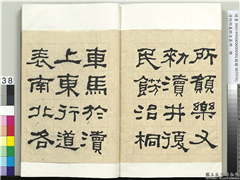 所願樂又
勑瀆井復
民餝治桐
車馬於瀆
上東行道
表南北各
38